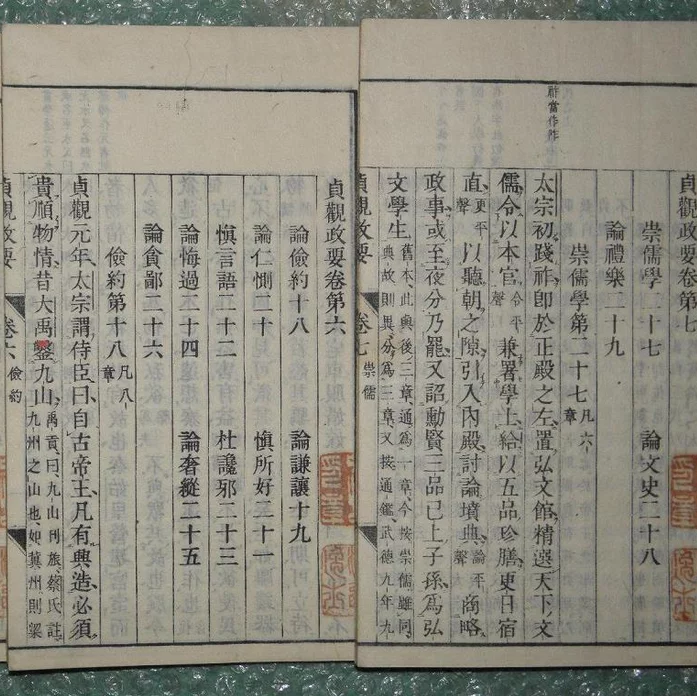 貞觀政要卷第七
崇儒學二十七　論文史二十八
論禮樂二十九
崇儒學第二十七凡六章
太宗初踐祚卽於正殿之左置弘文館精選天下文
儒令以本官令平聲兼署學士給以五品珍膳更日宿
直更平聲以聽朝之隙引入內殿討論墳典論平聲商略
政事或至夜分乃罷又詔勳賢三品已上子孫爲弘
文學生舊本此與後二章通爲一章今按崇儒雖同
典故則異分爲三章又按通鑑武德九年九
貞觀政要
卷七
崇儒
祚當作阼
貞觀政要卷第六
論儉約十八　論謙讓十九
論仁惻二十　慎所好二十一
慎言語二十二　杜讒邪二十三
論悔過二十四　論奢縱二十五
論貪鄙二十六
儉約第十八凡八章
貞觀元年太宗謂侍臣曰自古帝王凡有興造必須
貴順物情昔大禹鑿九山禹貢曰九山刊旅蔡氏註
九州之山也如冀州則梁
貞觀政要
卷六
儉約